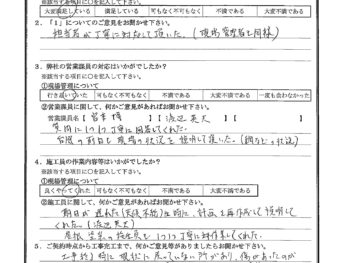 ※該当する項目に○を記入して下さい。
大変満足している 満足している 可もなく不可もなく 不満である 大変不満である
2．「1」についてのご意見をお聞かせ下さい。
担当者が丁寧に対応して頂いた。（現場管理者も同様）
3．弊社の営業課員の対応はいかがでしたか？
※該当する項目に○を記入して下さい。
①現場管理について
行き届いていた 可もなく不可もなく 不満である 大変不満である 一度も会わなかった
②営業課員に関して、何かご意見があればお聞かせ下さい。
営業課員名【 】【 渡辺 英夫 】
質問に1つ1つ丁寧に回答してくれた。
台風の前日も現場の状況を説明して頂いた。
4．施工員の作業内容等はいかがでしたか？
※該当する項目に○を記入して下さい。
①現場管理について
良くやってくれた 可もなく不可もなく 不満である 大変不満である
②施工員に関して、何かご意見があればお聞かせ下さい。
期日が遅れた(天候不順)
時に、計画を再作成して説明して
くれた。（渡辺英夫）
1つ1つ丁寧に対作業してくれた。
5．ご契約時点から工事完工まで、何かご意見等がありましたらお聞かせ下さい。